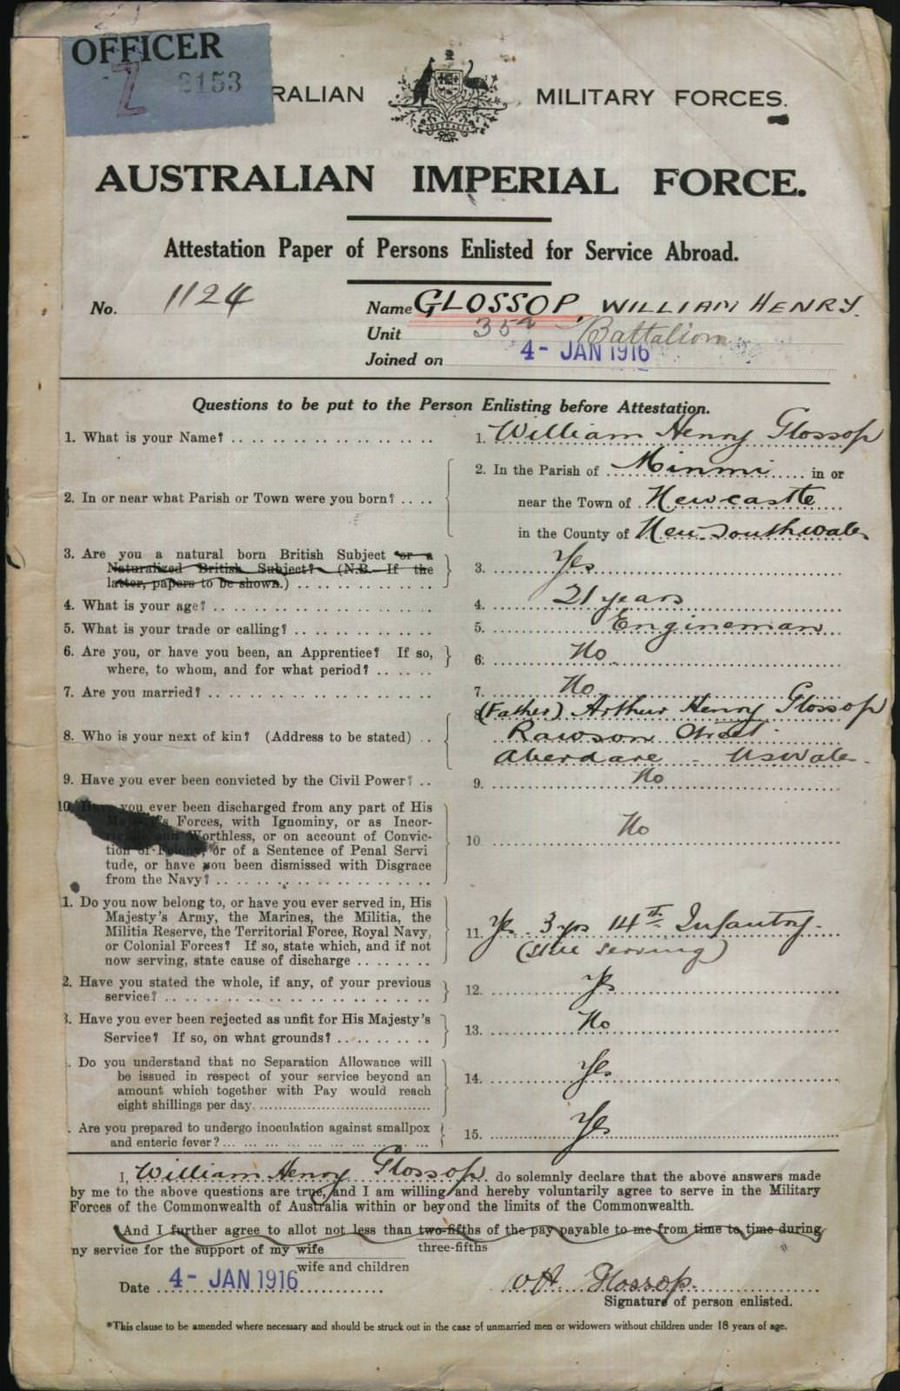 OFFICER
Z 2153
RALIAN MILITARY FORCES.
AUSTRALIAN IMPERIAL FORCE.
Attestation Paper of Persons Enlisted for Service Abroad.
No. 1124 Name GLOSSOP, WILLIAM HENRY.
Unit 35th Battalion
Joined on 4- JAN 1916
Questions to be put to the Person Enlisting before Attestation.
1. What is your Name? .. 1. William Henry Glossop
2. In or near what Parish or Town were you born? .... 2. In the Parish of Minmi in or
near the Town of Newcastle
in the County of New Southwales
3. Are you a natural born British Subject or a
Naturalized British Subject? (N.B.—If the
latter, papers to be shown.) 3. Yes
4. What is your age? 4. 21 years
5. What is your trade or calling? 5. Engineman
6. Are you, or have you been, an Apprentice? If so,
where, to whom, and for what period? 6. No
7. Are you married? 7. No
8. Who is your next of kin? (Address to be stated) .. 8. (Father) Arthur Henry Glossop
Rawson Street
Aberdare - NSWales.
9. Have you ever been convicted by the Civil Power? .. 9. No
10. Have you ever been discharged from any part of His
Majesty's Forces, with Ignominy, or as Incor-
and Worthless, or on account of Convic-
tion of Felony, or of a Sentence of Penal Servi
tude, or have you been dismissed with Disgrace
from the Navy? 10 No
1. Do you now belong to, or have you ever served in, His
Majesty's Army, the Marines, the Militia, the
Militia Reserve, the Territorial Force, Royal Navy,
or Colonial Forces? If so, state which, and if not
now serving, state cause of discharge 11. Yes. 3 yrs 14th Infantry.
(still serving)
2. Have you stated the whole, if any, of your previous
service? 12. Yes
3. Have you ever been rejected as unfit for His Majesty's
Service? If so, on what grounds? 13. No
. Do you understand that no Separation Allowance will
be issued in respect of your service beyond an
amount which together with Pay would reach
eight shillings per day. 14. Yes
. Are you prepared to undergo inoculation against smallpox
and enteric fever? 15. Yes
I, William Henry Glossop. do solemnly declare that the above answers made
by me to the above questions are true, and I am willing and hereby voluntarily agree to serve in the Military
Forces of the Commonwealth of Australia within or beyond the limits of the Commonwealth.
And I further agree to allot not less than two-fifths of the pay payable to me from time to time during
my service for the support of my wife three-fifths
wife and children
Date 4- JAN 1916 WH Glossop.
Signature of person enlisted.
*This clause to be amended where necessary and should be struck out in the case of unmarried men or widowers without children under 18 years of age.